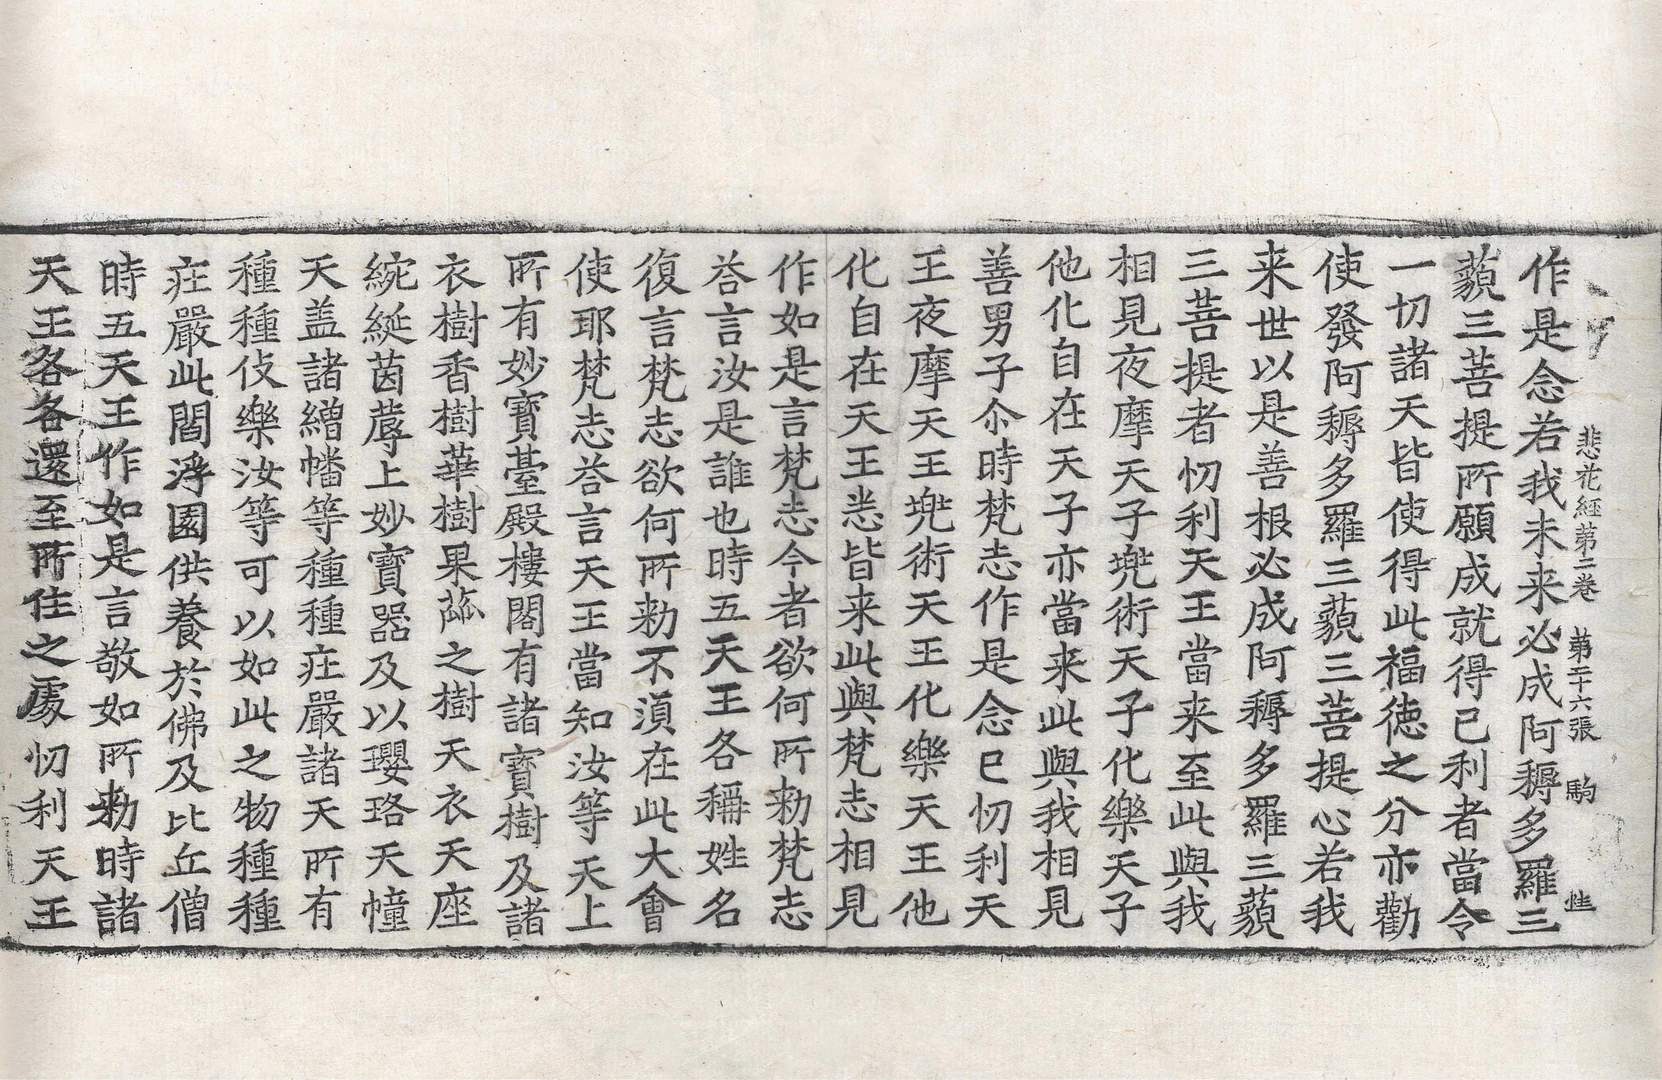 悲花經第二卷　第二十六張　駒
作是念若我未来必成阿耨多羅三
藐三菩提所願成就得已利者當令
一切諸天皆使得此福德之分亦勸
使發阿耨多羅三藐三菩提心若我
来世以是善根必成阿耨多羅三藐
三菩提者忉利天王當来至此與我
相見夜摩天子兜術天子化樂天子
他化自在天子亦當来此與我相見
善男子尒時梵志作是念已忉利天
王夜摩天王兜術天王化樂天王他
化自在天王悉皆来此與梵志相見
作如是言梵志今者欲何所勑梵志
荅言汝是誰也時五天王各稱姓名
復言梵志欲何所勑不湏在此大會
使耶梵志荅言天王當知汝等天上
所有妙寶臺殿樓閣有諸寶樹及諸
衣樹香樹華樹果蓏之樹天衣天座
綩綖茵蓐上妙寶器及以瓔珞天幢
天盖諸繒幡等種種庄嚴諸天所有
種種伎樂汝等可以如此之物種種
庄嚴此閻浮園供養於佛及比丘僧
時五天王作如是言敬如所勑時諸
天王各各還至所住之處忉利天王